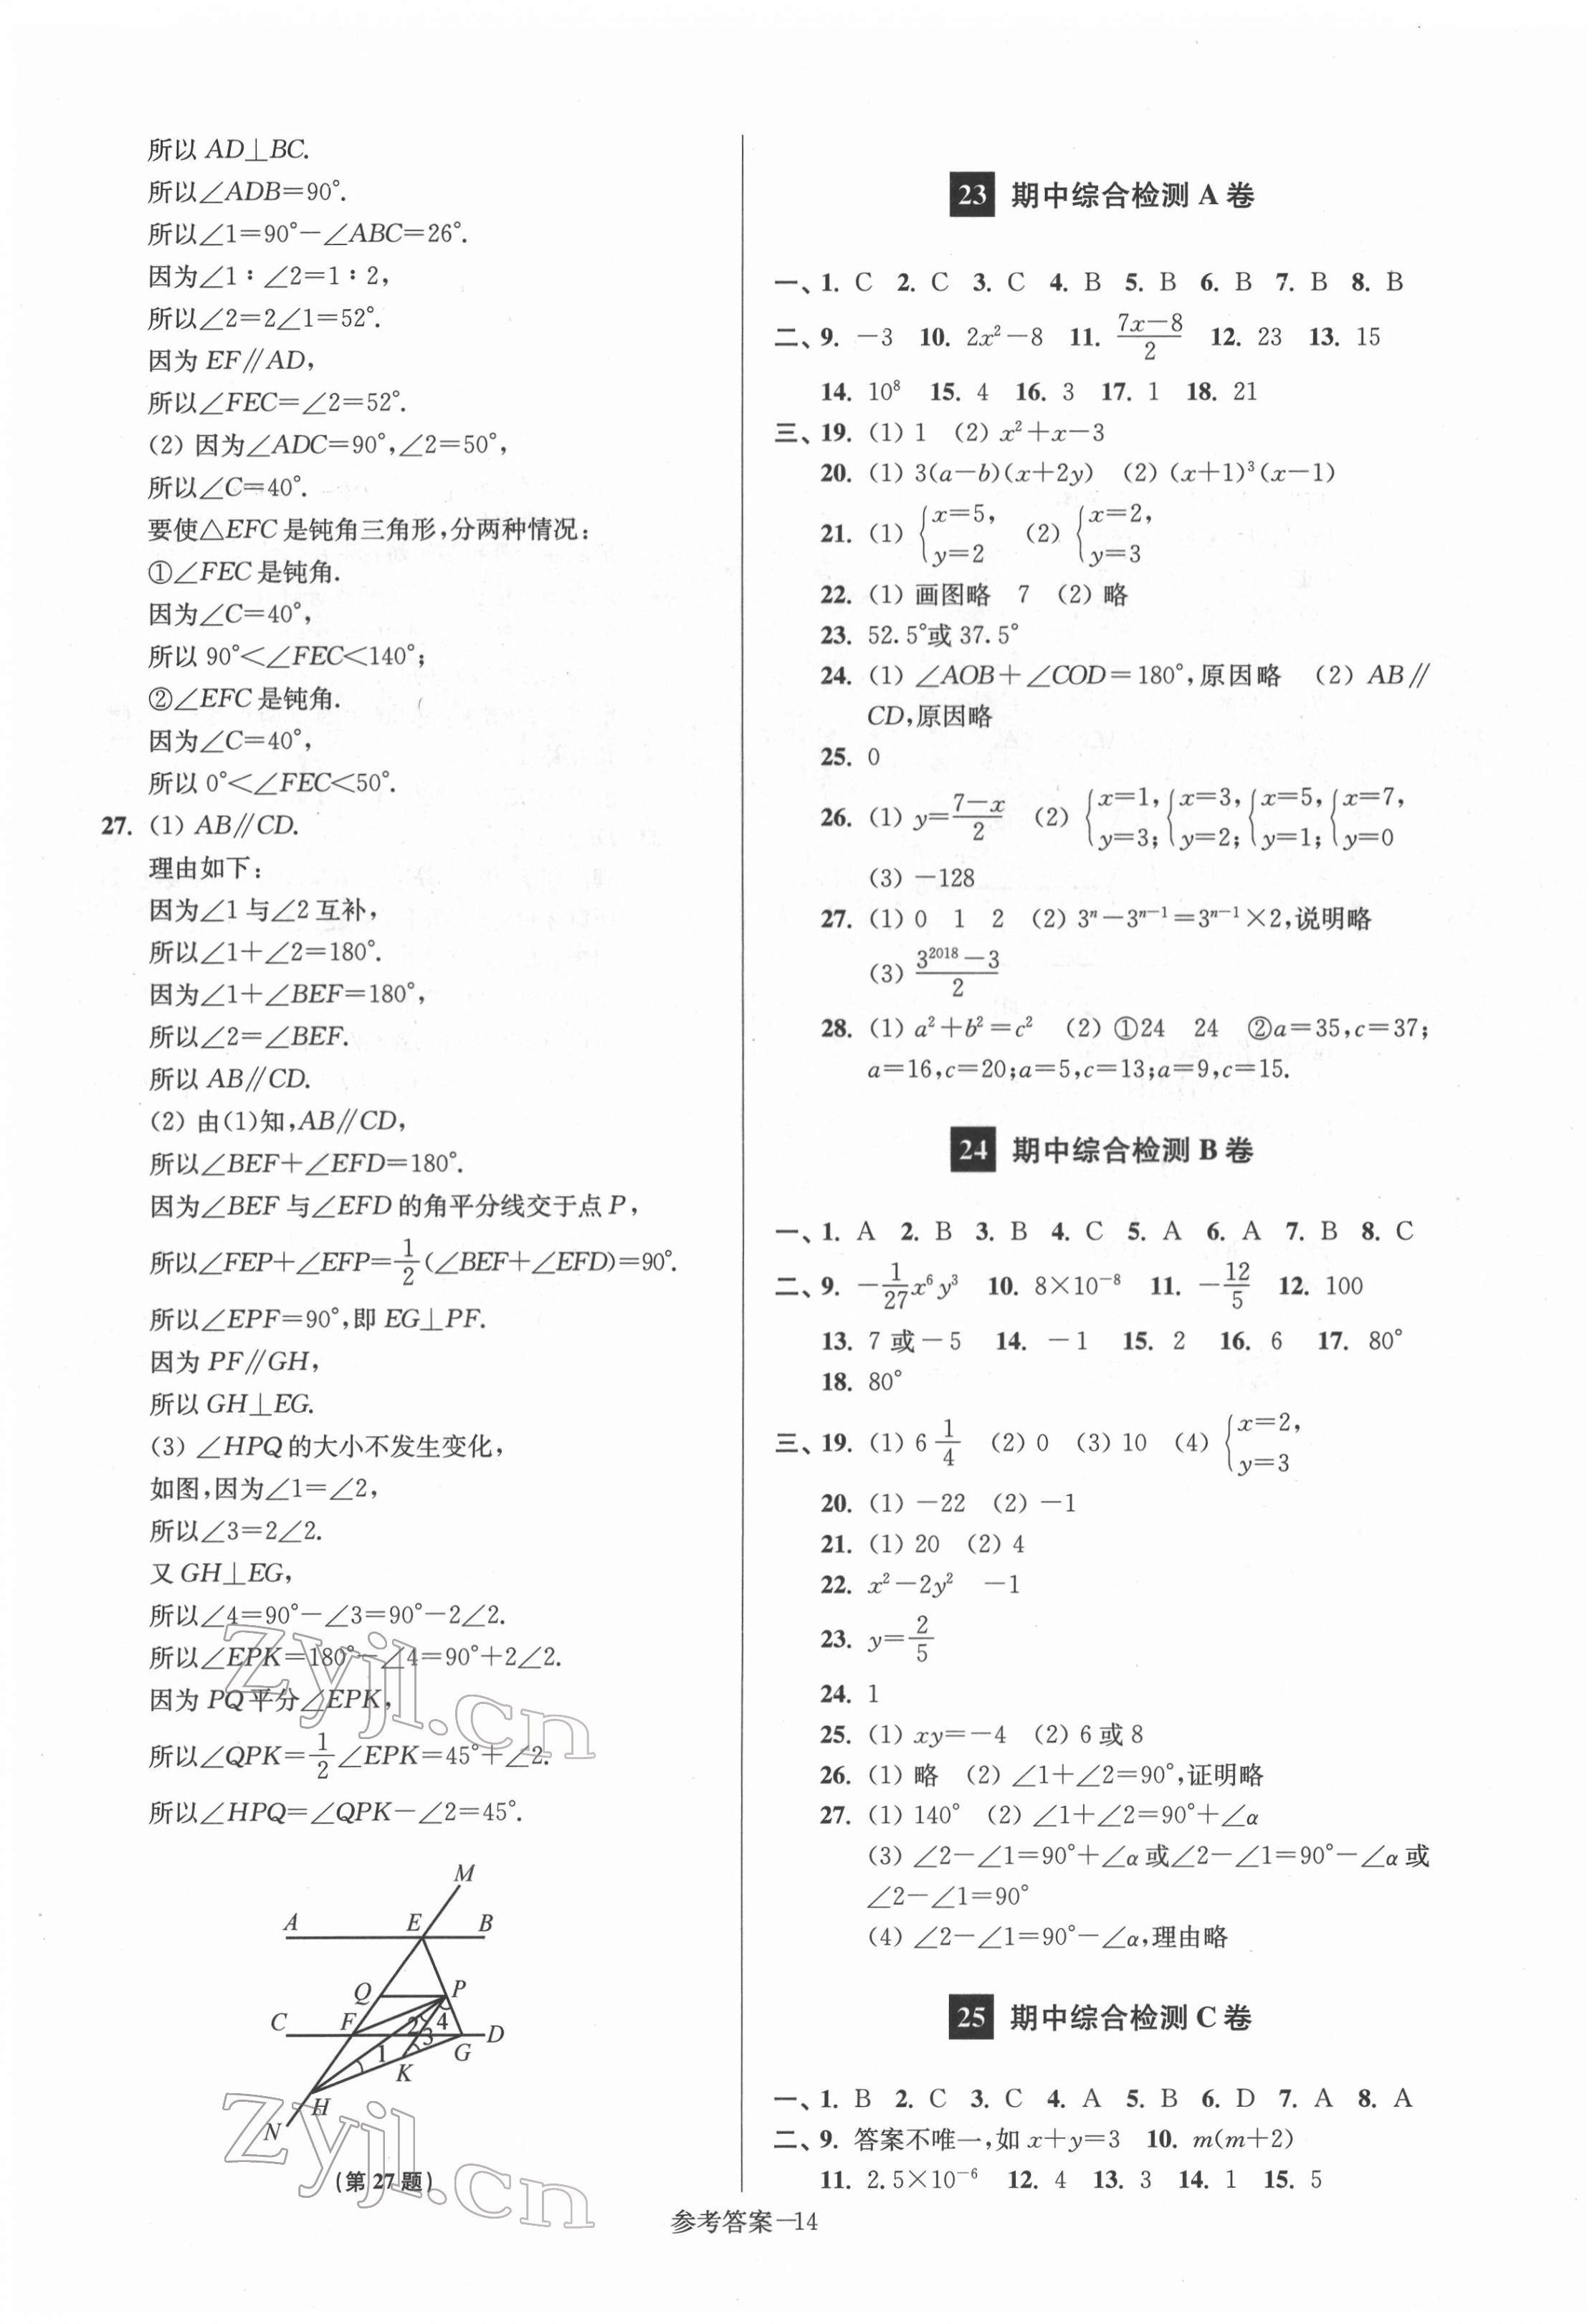 所以 AD⊥BC.
所以∠ADB=90°.
所以∠1=90°-∠ABC=26°.
因为∠1∶∠2=1∶2,
所以∠2=2∠1=52°.
因为 EF∥AD,
所以∠FEC=∠2=52°.
(2) 因为∠ADC=90°,∠2=50°,
所以∠C=40°.
要使△EFC 是钝角三角形,分两种情况:
①∠FEC 是钝角.
因为∠C=40°,
所以 90°<∠FEC<140°;
②∠EFC 是钝角.
因为∠C=40°,
所以 0°<∠FEC<50°.
27. (1) AB∥CD.
理由如下:
因为∠1 与∠2 互补,
所以∠1+∠2=180°.
因为∠1+∠BEF=180°,
所以∠2=∠BEF.
所以 AB∥CD.
(2) 由(1)知,AB∥CD,
所以∠BEF+∠EFD=180°.
因为∠BEF 与∠EFD 的角平分线交于点 P,
所以∠FEP+∠EFP=1/2(∠BEF+∠EFD)=90°.
所以∠EPF=90°,即 EG⊥PF.
因为 PF∥GH,
所以 GH⊥EG.
(3) ∠HPQ 的大小不发生变化,
如图,因为∠1=∠2,
所以∠3=2∠2.
又 GH⊥EG,
所以∠4=90°-∠3=90°-2∠2.
所以∠EPK=180°-∠4=90°+2∠2.
因为 PQ 平分∠EPK,
所以∠QPK=1/2∠EPK=45°+∠2.
所以∠HPQ=∠QPK-∠2=45°.
M
A E B
Q P
C F 2 4 D
3
1 K G
H
N
(第 27 题)
zyjl.cn
zyjl.cn
23 期中综合检测 A 卷
一、1. C 2. C 3. C 4. B 5. B 6. B 7. B 8. B
二、9. -3 10. 2x²-8 11. (7x-8)/2 12. 23 13. 15
14. 10⁸ 15. 4 16. 3 17. 1 18. 21
三、19. (1) 1 (2) x²+x-3
20. (1) 3(a-b)(x+2y) (2) (x+1)³(x-1)
21. (1) {x=5, y=2 (2) {x=2, y=3
22. (1) 画图略 7 (2) 略
23. 52.5°或 37.5°
24. (1) ∠AOB+∠COD=180°,原因略 (2) AB∥
CD,原因略
25. 0
26. (1) y=(7-x)/2 (2) {x=1, y=3; {x=3, y=2; {x=5, y=1; {x=7, y=0
(3) -128
27. (1) 0 1 2 (2) 3ⁿ-3ⁿ⁻¹=3ⁿ⁻¹×2,说明略
(3) (3²⁰¹⁸-3)/2
28. (1) a²+b²=c² (2) ①24 24 ②a=35,c=37;
a=16,c=20;a=5,c=13;a=9,c=15.
24 期中综合检测 B 卷
一、1. A 2. B 3. B 4. C 5. A 6. A 7. B 8. C
二、9. -1/27x⁶y³ 10. 8×10⁻⁸ 11. -12/5 12. 100
13. 7 或-5 14. -1 15. 2 16. 6 17. 80°
18. 80°
三、19. (1) 6 1/4 (2) 0 (3) 10 (4) {x=2, y=3
20. (1) -22 (2) -1
21. (1) 20 (2) 4
22. x²-2y² -1
23. y=2/5
24. 1
25. (1) xy=-4 (2) 6 或 8
26. (1) 略 (2) ∠1+∠2=90°,证明略
27. (1) 140° (2) ∠1+∠2=90°+∠α
(3) ∠2-∠1=90°+∠α 或∠2-∠1=90°-∠α 或
∠2-∠1=90°
(4) ∠2-∠1=90°-∠α,理由略
25 期中综合检测 C 卷
一、1. B 2. C 3. C 4. A 5. B 6. D 7. A 8. A
二、9. 答案不唯一,如 x+y=3 10. m(m+2)
11. 2.5×10⁻⁶ 12. 4 13. 3 14. 1 15. 5
参考答案—14